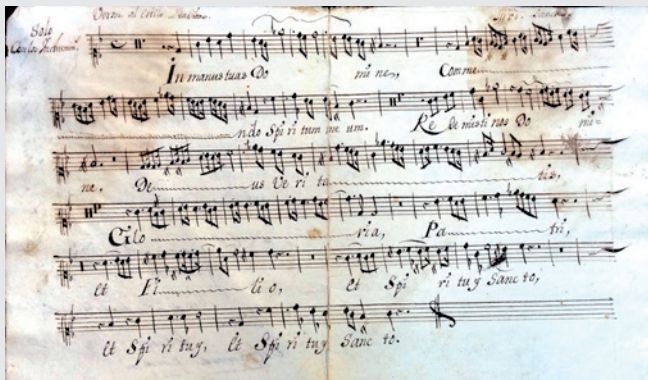 Solo
In manus tuas Do mi ne, Comme
ndo Spi ri tum me um. Re de misti nos Do mi=
ne. De us Ve ri ta tis,
Glo ria, Pa tri,
et Fi li o, et Spi ri tuy Sanc to,
et Spi ri tuy, et Spi ri tuy Sanc to.